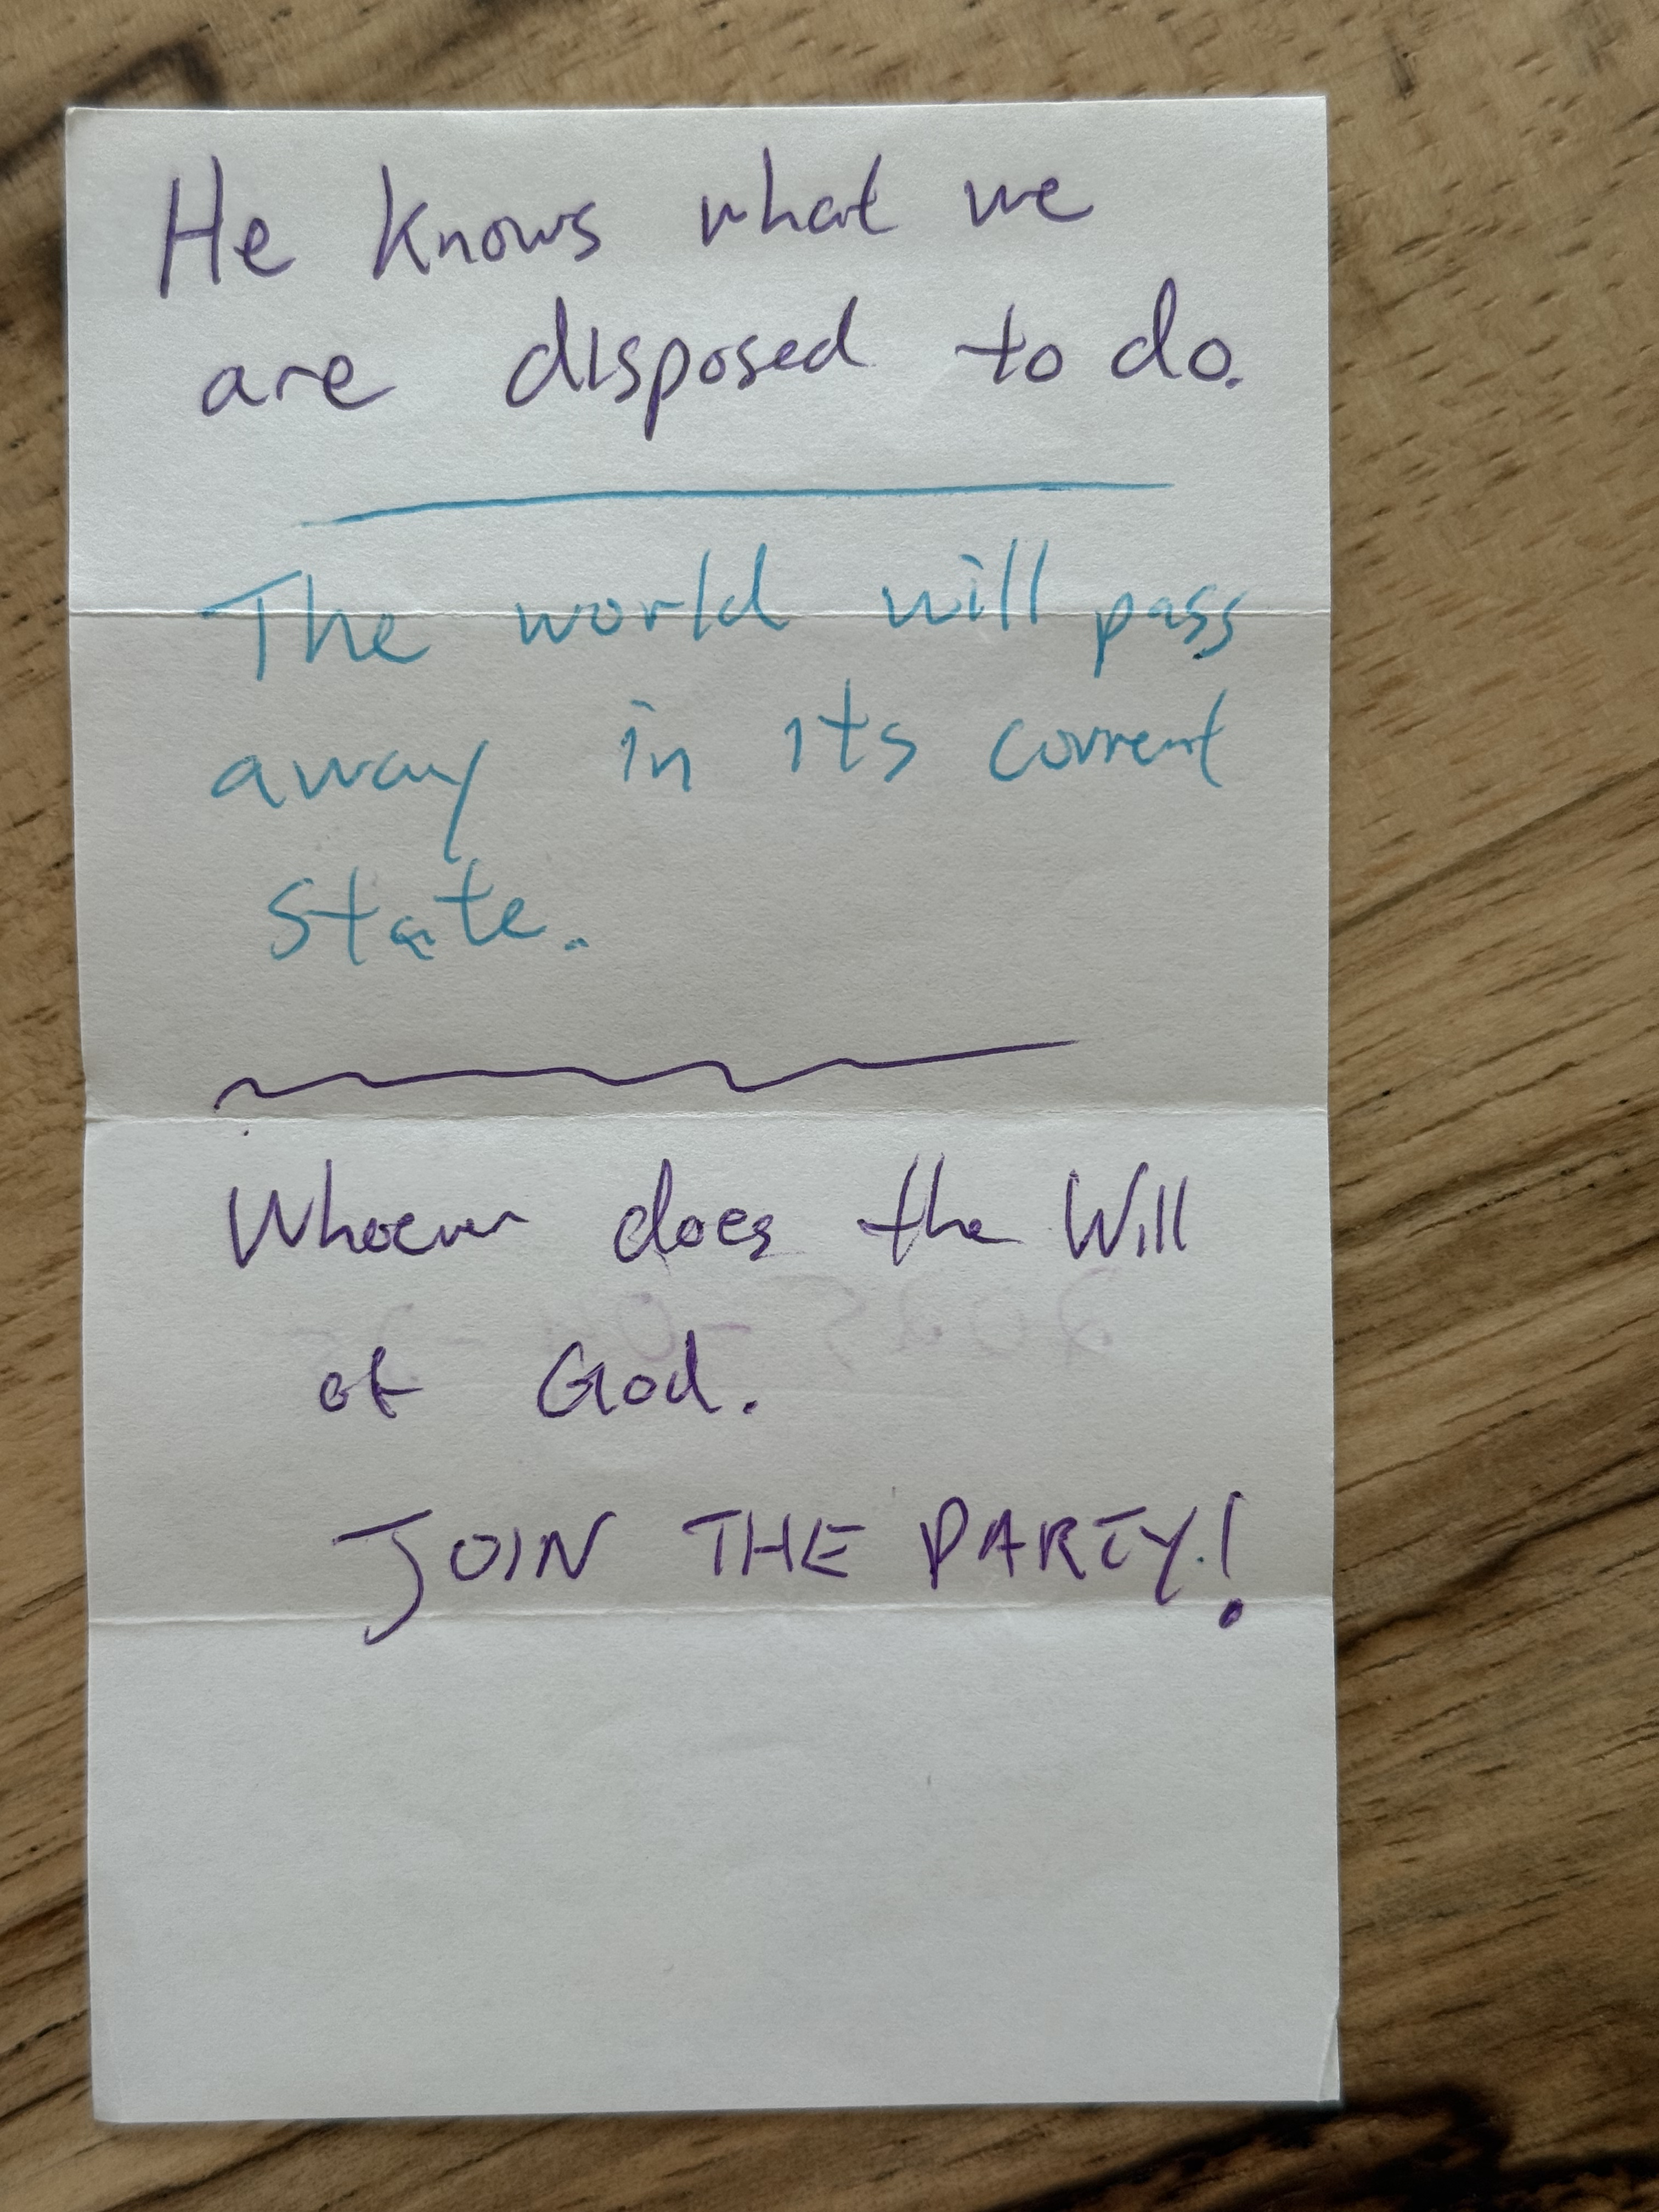 He knows what we
are disposed to do.
The world will pass
away in its current
state.
Whoever does the Will
of God.
JOIN THE PARTY!